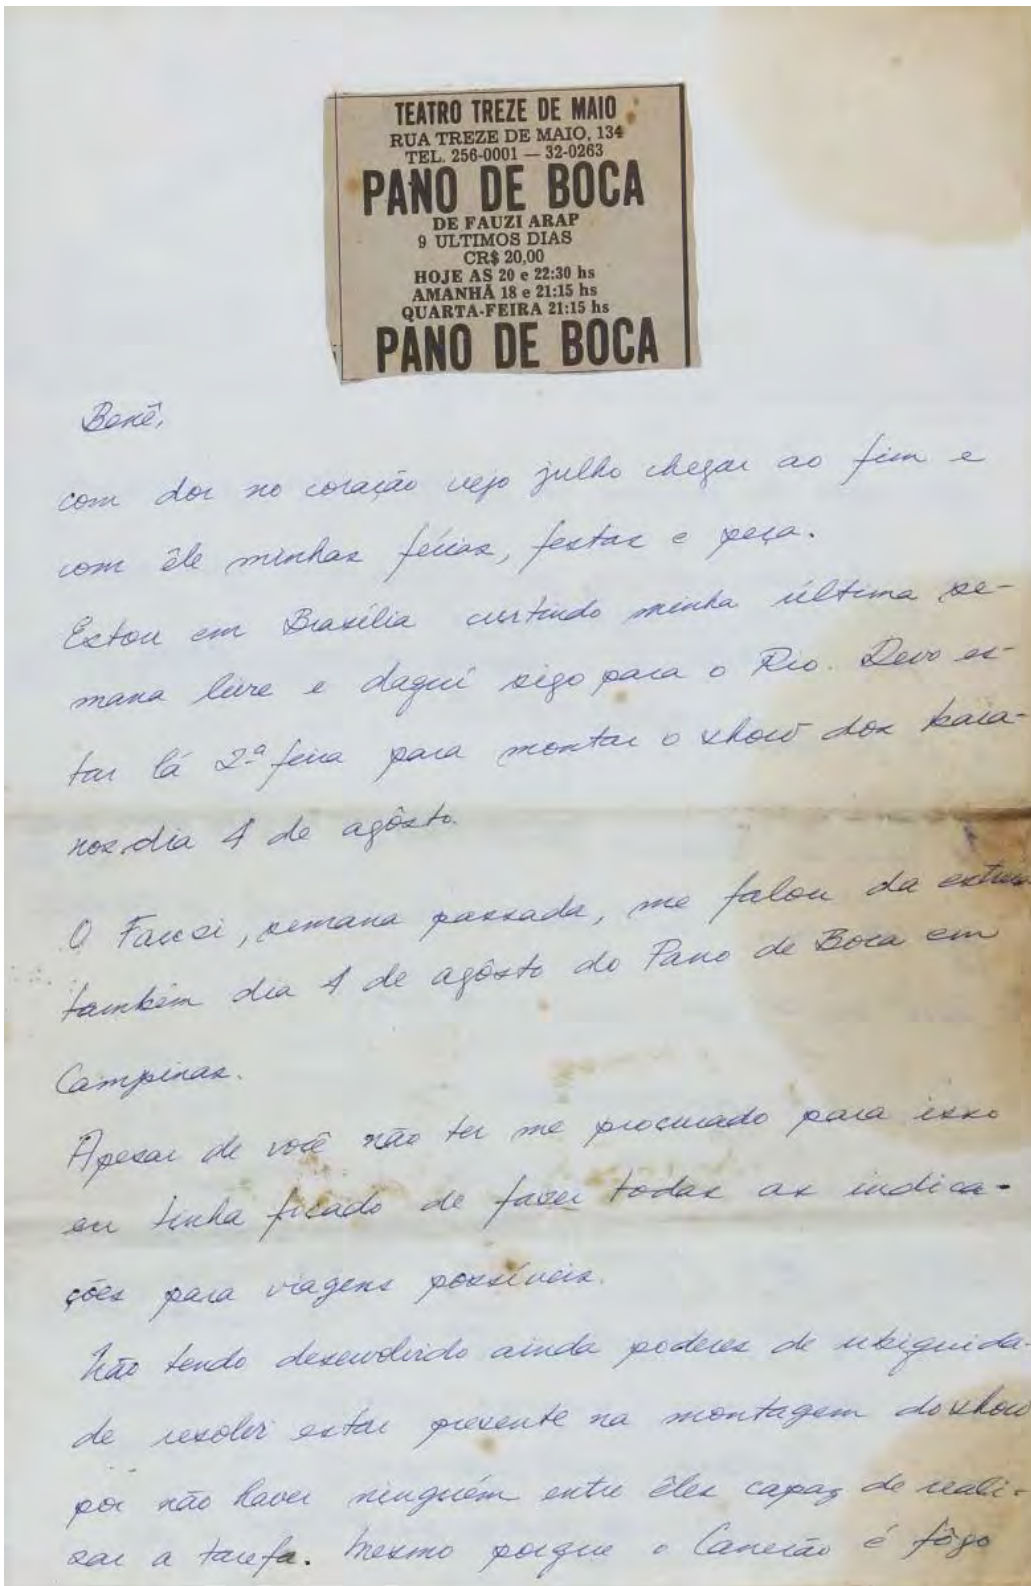 TEATRO TREZE DE MAIO
RUA TREZE DE MAIO, 134
TEL. 256-0001 — 32-0263
PANO DE BOCA
DE FAUZI ARAP
9 ULTIMOS DIAS
CR$ 20,00
HOJE AS 20 e 22:30 hs
AMANHÃ 18 e 21:15 hs
QUARTA-FEIRA 21:15 hs
PANO DE BOCA
Benê,
com dor no coração vejo julho chegar ao fim e
com êle minhas férias, festas e peça.
Estou em Brasília curtindo minha última se-
mana livre e daqui sigo para o Rio. Devo es-
tar lá 2ª feira para montar o show dos baia-
nos dia 4 de agôsto.
O Fauzi, semana passada, me falou da estréia
também dia 4 de agôsto do Pano de Boca em
Campinas.
Apesar de você não ter me procurado para isso
eu tinha ficado de fazer todas as indica-
ções para viagens possíveis.
Não tendo desenvolvido ainda poderes de ubiquida-
de resolvi estar presente na montagem do show
por não haver ninguém entre êles capaz de reali-
zar a tarefa. Mesmo porque o Canecão é fôgo